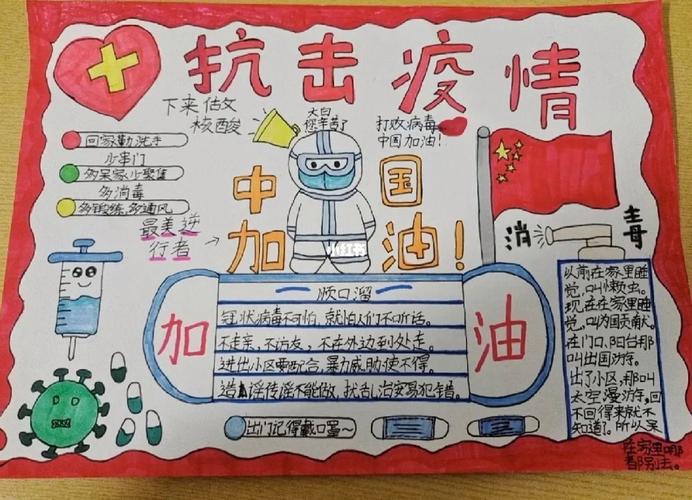 抗击疫情
下来估文
核酸
大白
您辛苦了
打败病毒
中国加油!
回家勤洗手
少串门
多呆家少聚集
多消毒
多锻炼,多通风
最美逆
行者
中国
加油!
小红书
消毒
加
油
顺口溜
冠状病毒不可怕,就怕人们不听话。
不走亲,不访友,不在外边到处走。
进出小区要配合,暴力威胁使不得。
造谣传谣不能做,扰乱治安易犯错。
出门记得戴口罩~
以前在家里睡
觉,叫小懒虫。
现在在家里睡
觉,叫为国贡献。
在门口、阳台那
叫出国游。
出了小区,那叫
太空漫游,回
不回得来就不
知道了。所以呆
在家里哪
都别去。